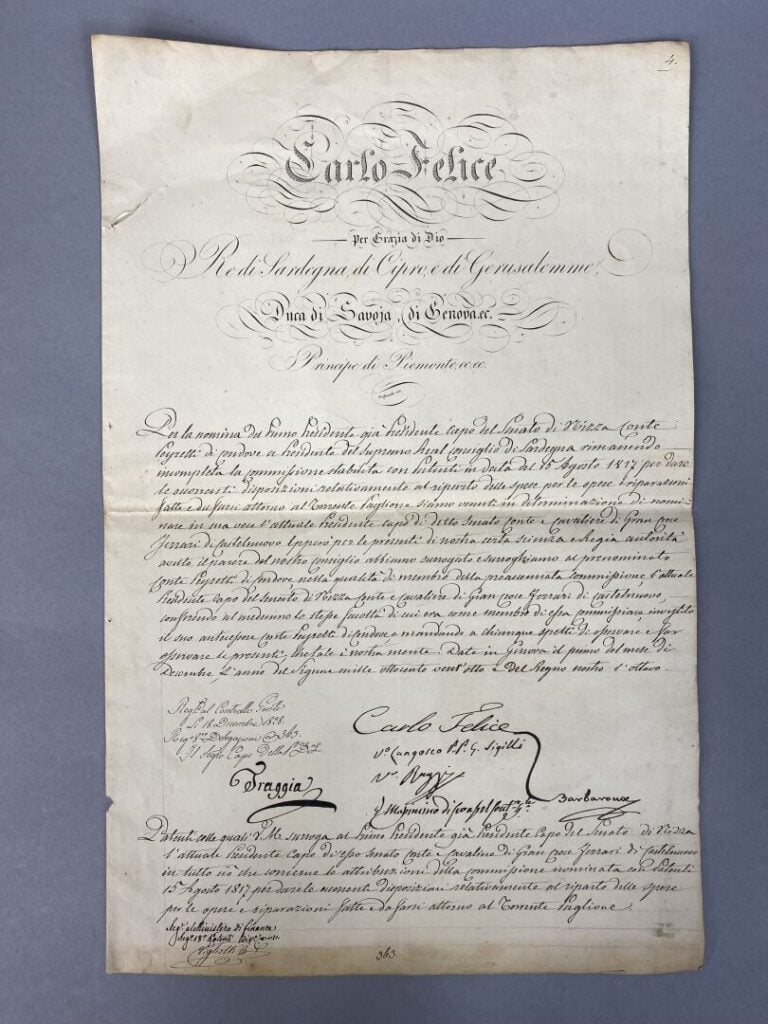 4.
Carlo Felice
Per Grazia di Dio
Re di Sardegna, di Cipro, e di Gerusalemme,
Duca di Savoja, di Genova, ec.
Principe di Piemonte, ec. ec.
Per la nomina del Primo Presidente già Presidente Capo del Senato di Nizza Conte
Peyretti di Condove a Presidente del Supremo Real Consiglio di Sardegna rimanendo
incompleta la commissione stabilita con Patenti in data del 15 Agosto 1817 per dare
le occorrenti disposizioni relativamente al riparto delle spese per le opere e riparazioni
fatte e da farsi attorno al Torrente Paglione siamo venuti in determinazione di nomi=
nare in sua vece l'attuale Presidente capo di detto Senato Conte e Cavaliere di Gran Croce
Ferrari di Castelnuovo. Epperò per le presenti di nostra certa scienza e Regia autorità
avuto il parere del nostro Consiglio abbiamo surrogato e surroghiamo al prenominato
Conte Peyretti di Condove nella qualità di membro della preaccennata Commissione l'attuale
Presidente Capo del Senato di Nizza Conte e Cavaliere di Gran Croce Ferrari di Castelnuovo,
conferendo al medesimo le stesse facoltà di cui era come membro di essa Commissione investito
il suo antecessore Conte Peyretti di Condove e mandando a chiunque spetti di osservare e far
osservare le presenti, che tale è nostra mente. Date in Genova il primo del mese di
Decembre, l'anno del Signore mille ottocento vent'otto e del Regno nostro l'ottavo.
Reg.to al Controllo Gen.le
Li 18 Decembre 1828.
Reg.o 8.o Delegazioni C. 363.
Il Segro Capo Della
Fraggia
Carlo Felice
V.o Langosco P.P. G. Sigilli
V.o
Barbaroux
Patenti colle quali V.M. surroga al Primo Presidente già Presidente Capo del Senato di Nizza
l'attuale Presidente Capo di esso Senato Conte e Cavaliere di Gran Croce Ferrari di Castelnuovo
in tutto ciò che concerne le attribuzioni della commissione nominata con Patenti
15 Agosto 1817 per dare le occorrenti disposizioni relativamente al riparto delle spese
per le opere e riparazioni fatte e da farsi attorno al Torrente Paglione.
Reg.o al Ministero di Finanze
363